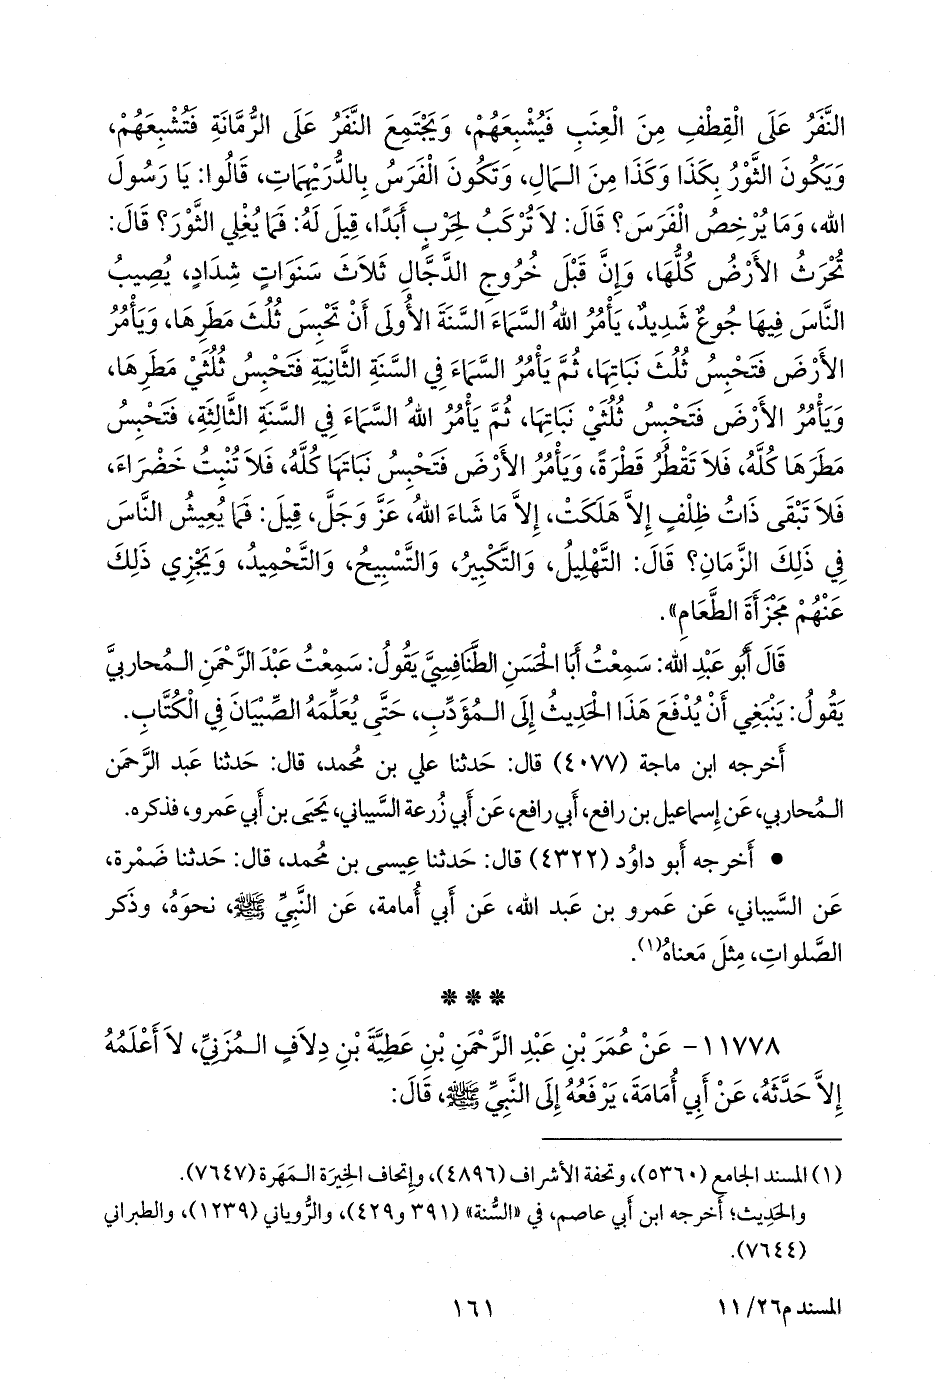 النَّفَرُ عَلَى الْقِطْفِ مِنَ الْعِنَبِ فَيُشْبِعَهُمْ، وَيَجْتَمِعَ النَّفَرُ عَلَى الرُّمَّانَةِ فَتُشْبِعَهُمْ،
وَيَكُونَ الثَّوْرُ بِكَذَا وَكَذَا مِنَ الـمَالِ، وَتَكُونَ الْفَرَسُ بِالدُّرَيْهِمَاتِ، قَالُوا: يَا رَسُولَ
الله، وَمَا يُرْخِصُ الْفَرَسَ؟ قَالَ: لاَ تُرْكَبُ لِحَرْبٍ أَبَدًا، قِيلَ لَهُ: فَمَا يُغْلِي الثَّوْرَ؟ قَالَ:
تُحْرَثُ الأَرْضُ كُلُّهَا، وَإِنَّ قَبْلَ خُرُوجِ الدَّجَّالِ ثَلاَثَ سَنَوَاتٍ شِدَادٍ، يُصِيبُ
النَّاسَ فِيهَا جُوعٌ شَدِيدٌ، يَأْمُرُ اللهُ السَّمَاءَ السَّنَةَ الأُولَى أَنْ تَحْبِسَ ثُلُثَ مَطَرِهَا، وَيَأْمُرُ
الأَرْضَ فَتَحْبِسُ ثُلُثَ نَبَاتِهَا، ثُمَّ يَأْمُرُ السَّمَاءَ فِي السَّنَةِ الثَّانِيَةِ فَتَحْبِسُ ثُلُثَيْ مَطَرِهَا،
وَيَأْمُرُ الأَرْضَ فَتَحْبِسُ ثُلُثَيْ نَبَاتِهَا، ثُمَّ يَأْمُرُ اللهُ السَّمَاءَ فِي السَّنَةِ الثَّالِثَةِ، فَتَحْبِسُ
مَطَرَهَا كُلَّهُ، فَلاَ تَقْطُرُ قَطْرَةً، وَيَأْمُرُ الأَرْضَ فَتَحْبِسُ نَبَاتَهَا كُلَّهُ، فَلاَ تُنْبِتُ خَضْرَاءَ،
فَلاَ تَبْقَى ذَاتُ ظِلْفٍ إِلاَّ هَلَكَتْ، إِلاَّ مَا شَاءَ اللهُ، عَزَّ وَجَلَّ، قِيلَ: فَمَا يُعِيشُ النَّاسَ
فِي ذَلِكَ الزَّمَانِ؟ قَالَ: التَّهْلِيلُ، وَالتَّكْبِيرُ، وَالتَّسْبِيحُ، وَالتَّحْمِيدُ، وَيَجْزِي ذَلِكَ
عَنْهُمْ مَجْزَأَةَ الطَّعَامِ».
قَالَ أَبُو عَبْدِ الله: سَمِعْتُ أَبَا الْحَسَنِ الطَّنَافِسِيَّ يَقُولُ: سَمِعْتُ عَبْدَ الرَّحْمَنِ الـمُحَارِبيَّ
يَقُولُ: يَنْبَغِي أَنْ يُدْفَعَ هَذَا الْحَدِيثُ إِلَى الـمُؤَدِّبِ، حَتَّى يُعَلِّمَهُ الصِّبْيَانَ فِي الْكُتَّابِ.
أَخرجه ابن ماجة (٤٠٧٧) قال: حَدثنا علي بن مُحمد، قال: حَدثنا عَبد الرَّحمَن
الـمُحاربي، عَن إسماعيل بن رافع، أَبي رافع، عَن أَبي زُرعة السَّيباني، يَحيَى بن أَبي عَمرو، فذكره.
• أَخرجه أَبو داوُد (٤٣٢٢) قال: حَدثنا عِيسى بن مُحمد، قال: حَدثنا ضَمْرة،
عَن السَّيباني، عَن عَمرو بن عَبد الله، عَن أَبي أُمامة، عَن النَّبيِّ ﷺ، نحوَهُ، وذكر
الصَّلواتِ، مِثلَ مَعناهُ(١).
***
١١٧٧٨- عَنْ عُمَرَ بْنِ عَبْدِ الرَّحْمَنِ بْنِ عَطِيَّةَ بْنِ دِلاَفٍ الـمُزَنِيِّ، لاَ أَعْلَمُهُ
إِلاَّ حَدَّثَهُ، عَنْ أَبِي أُمَامَةَ، يَرْفَعُهُ إِلَى النَّبِيِّ ﷺ، قَالَ:
(١) المسند الجامع (٥٣٦٠)، وتحفة الأشراف (٤٨٩٦)، وإتحاف الخِيرَة الـمَهَرة (٧٦٤٧).
والحَدِيث؛ أَخرجه ابن أَبي عاصم، في «السُّنة» (٣٩١ و٤٢٩)، والرُّوياني (١٢٣٩)، والطبراني
(٧٦٤٤).
المسند م٢٦/ ١١
١٦١